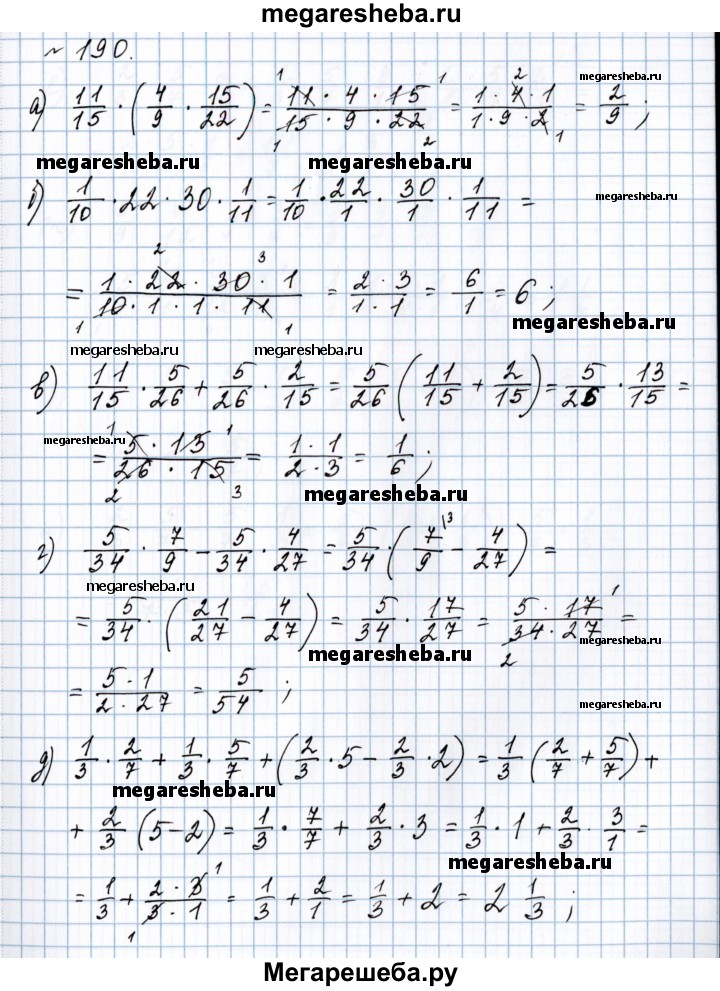 megaresheba.ru
№ 190.
а) 11/15 · (4/9 · 15/22) = 11 · 4 · 15 / 15 · 9 · 22 = 1 · 4 · 1 / 1 · 9 · 2 = 2/9 ;
megaresheba.ru
megaresheba.ru megaresheba.ru
б) 1/10 · 22 · 30 · 1/11 = 1/10 · 22/1 · 30/1 · 1/11 =
megaresheba.ru
= 1 · 22 · 30 · 1 / 10 · 1 · 1 · 11 = 2 · 3 / 1 · 1 = 6/1 = 6 ;
megaresheba.ru
megaresheba.ru megaresheba.ru
в) 11/15 · 5/26 + 5/26 · 2/15 = 5/26 (11/15 + 2/15) = 5/26 · 13/15 =
megaresheba.ru
= 5 · 13 / 26 · 15 = 1 · 1 / 2 · 3 = 1/6 ;
megaresheba.ru
г) 5/34 · 7/9 - 5/34 · 4/27 = 5/34 · (7/9 \3 - 4/27) =
megaresheba.ru
= 5/34 · (21/27 - 4/27) = 5/34 · 17/27 = 5 · 17 / 34 · 27 =
megaresheba.ru megaresheba.ru
= 5 · 1 / 2 · 27 = 5/54 ;
megaresheba.ru
д) 1/3 · 2/7 + 1/3 · 5/7 + (2/3 · 5 - 2/3 · 2) = 1/3 (2/7 + 5/7) +
megaresheba.ru megaresheba.ru
+ 2/3 (5-2) = 1/3 · 7/7 + 2/3 · 3 = 1/3 · 1 + 2/3 · 3/1 =
megaresheba.ru
= 1/3 + 2 · 3 / 3 · 1 = 1/3 + 2/1 = 1/3 + 2 = 2 1/3 ;
megaresheba.ru
Мегарешеба.ру